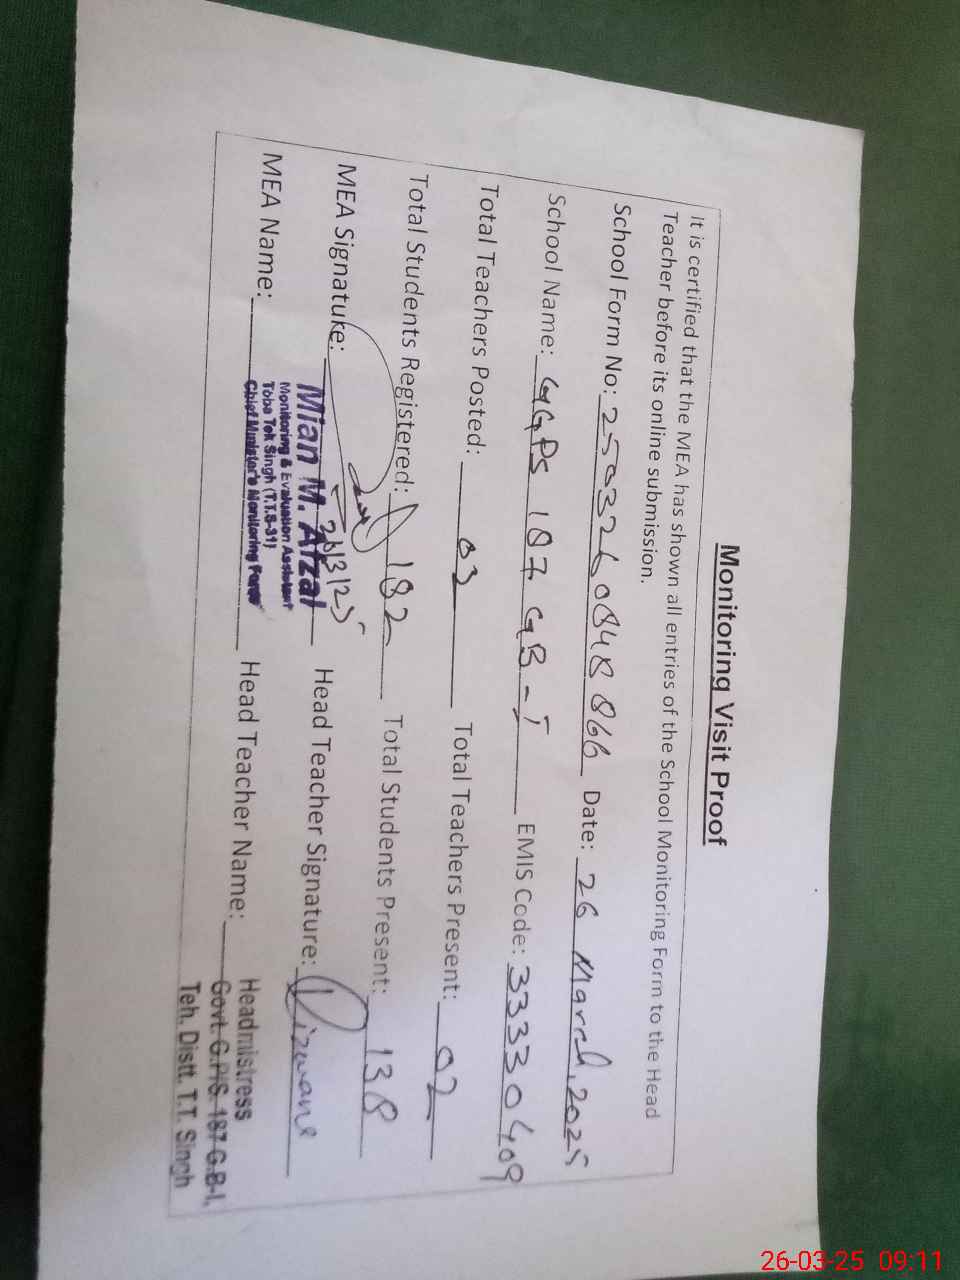 Monitoring Visit Proof
It is certified that the MEA has shown all entries of the School Monitoring Form to the Head
Teacher before its online submission.
School Form No: 2503260848866 Date: 26 March, 2025
School Name: GGPS 187 GB-I EMIS Code: 33330409
Total Teachers Posted: 03 Total Teachers Present: 02
Total Students Registered: 182 Total Students Present: 138
MEA Signature: 26/3/25 Head Teacher Signature: Rizwana
MEA Name: Mian M. Afzal Head Teacher Name:
Monitoring & Evaluation Assistant
Toba Tek Singh (T.T.S-31)
Chief Minister's Monitoring Force
Headmistress
Govt. G.P/S. 187 G.B-I.
Teh. Distt. T.T. Singh
26-03-25 09:11